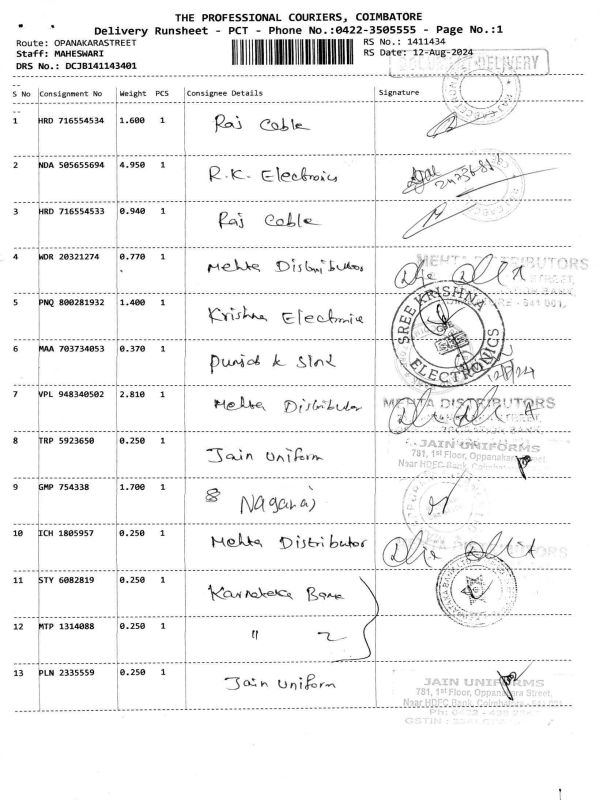 THE PROFESSIONAL COURIERS, COIMBATORE
Delivery Runsheet - PCT - Phone No.:0422-3505555 - Page No.:1
Route: OPANAKARASTREET RS No.: 1411434
Staff: MAHESWARI RS Date: 12-Aug-2024
DRS No.: DCJB141143401 DELIVERY
S No Consignment No Weight PCS Consignee Details Signature
1 HRD 716554534 1.600 1 Raj Cable
2 NDA 505655694 4.950 1 R.K. Electronics
3 HRD 716554533 0.940 1 Raj Cable
4 WDR 20321274 0.770 1 Mehta Distributor MEHTA DISTRIBUTORS
STREET,
BANK,
- 641 001,
5 PNQ 800281932 1.400 1 Krishna Electronic SREE KRISHNA ELECTRONICS
6 MAA 703734053 0.370 1 Punjab k
12/8/24
7 VPL 948340502 2.810 1 Mehta Distributor MEHTA DISTRIBUTORS
8 TRP 5923650 0.250 1 Jain Uniform JAIN UNIFORMS
781, 1st Floor, Oppanakara Street,
Near HDFC Bank, Coimbatore
9 GMP 754338 1.700 1 Nagaraj
10 ICH 1805957 0.250 1 Mehta Distributor
11 STY 6082819 0.250 1 Karnataka Bank
12 MTP 1314088 0.250 1 " 2
13 PLN 2335559 0.250 1 Jain Uniform JAIN UNIFORMS
781, 1st Floor, Oppanakara Street,
Near HDFC Bank, Coimbatore
GSTIN :